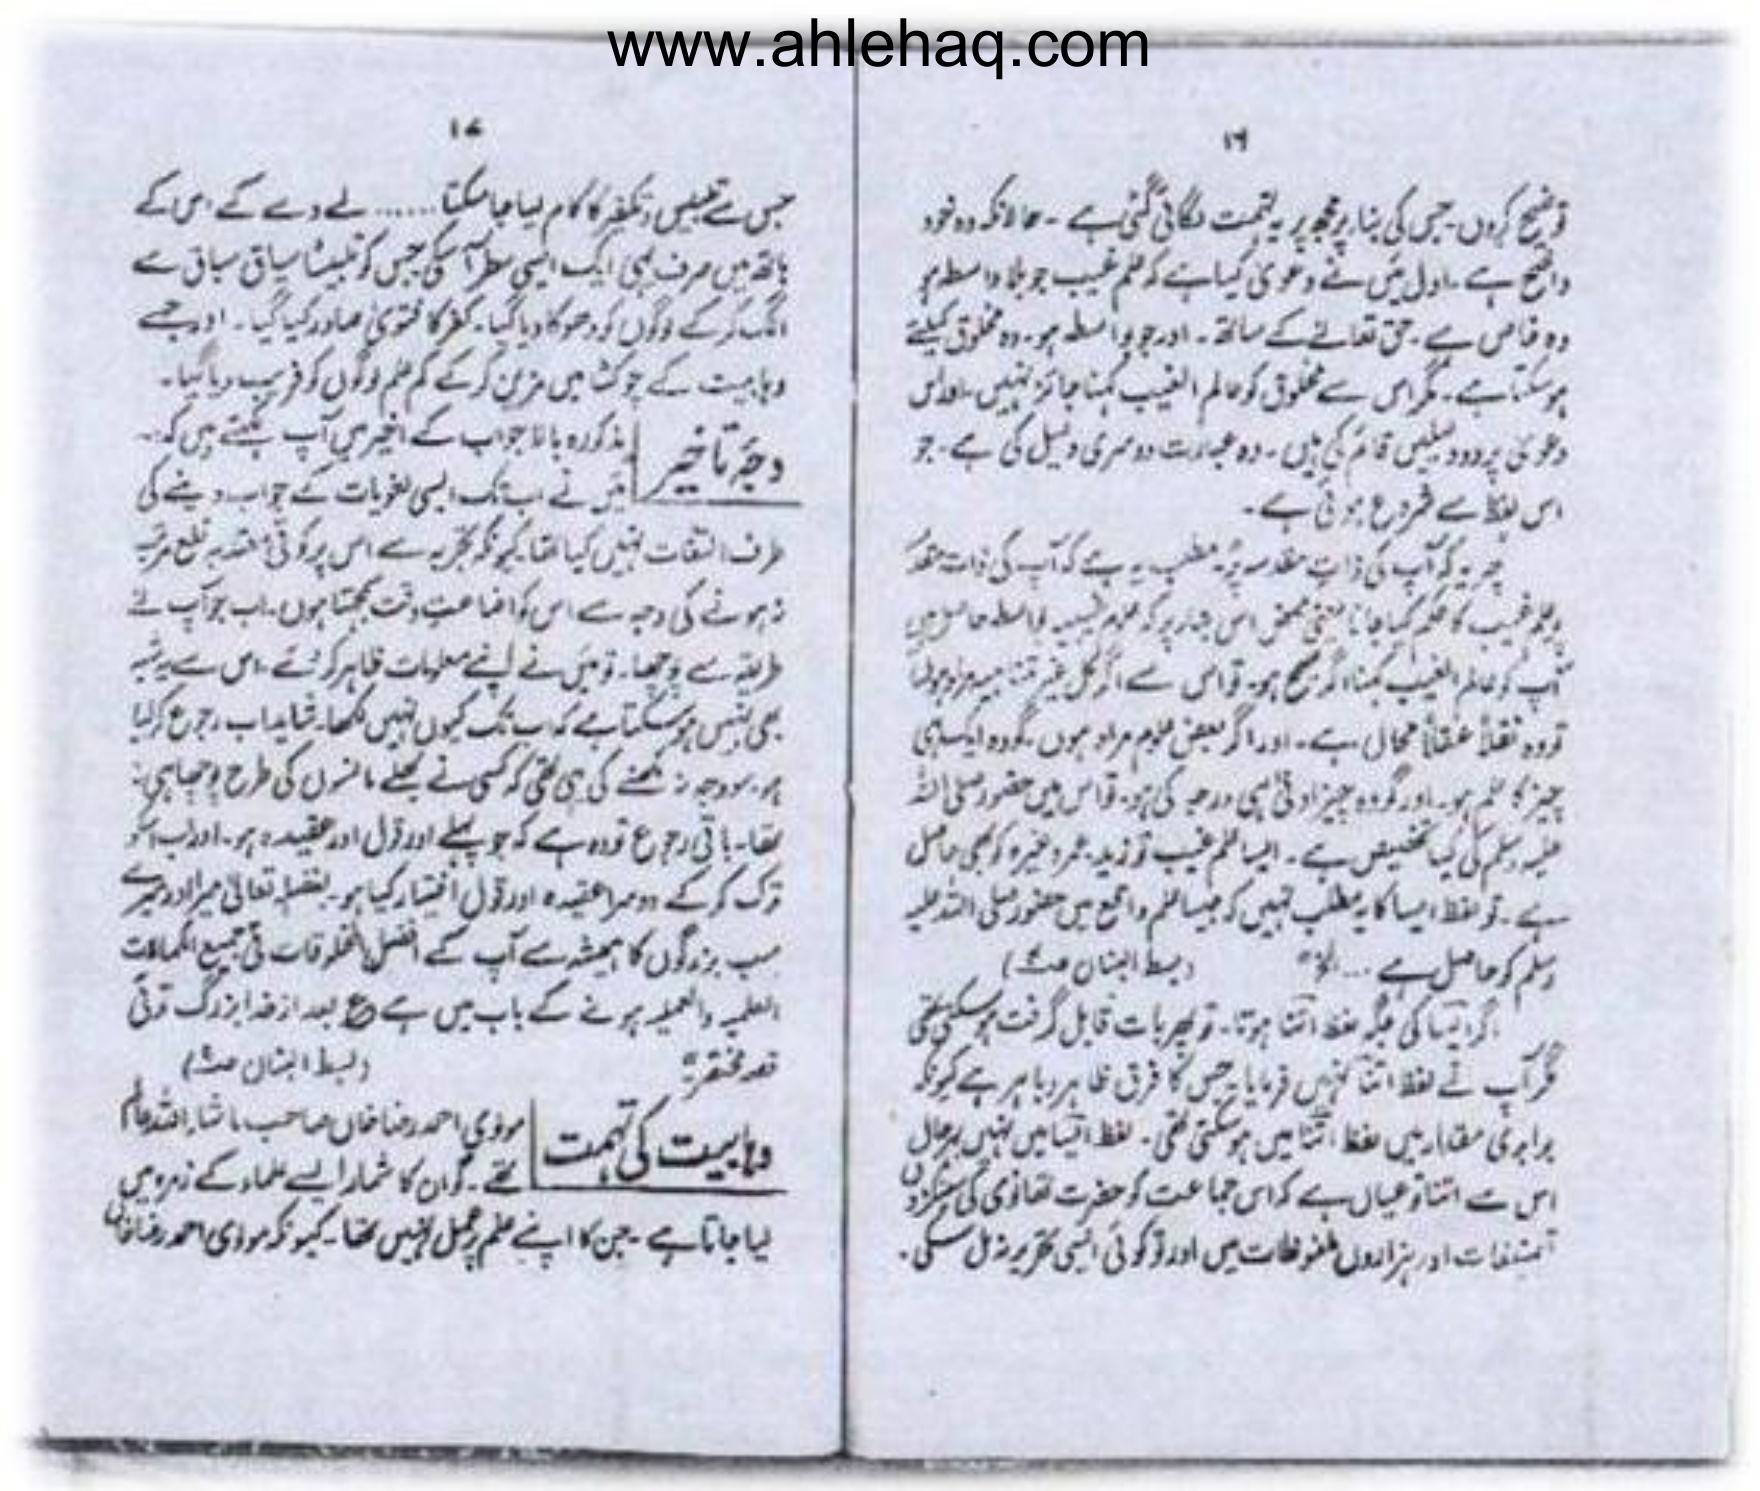 www.ahlehaq.com
۱۶
توضیح کروں۔ جس کی بنا پر مجھ پر یہ تہمت لگائی گئی ہے۔ حالانکہ وہ خود
واضح ہے۔ اول میں نے دعویٰ کیا ہے کہ علم غیب جو بلا واسطہ ہو
وہ خاص ہے۔ حق تعالےٰ کے ساتھ۔ اور جو بواسطہ ہو۔ وہ مخلوق کیلئے
ہو سکتا ہے۔ مگر اس سے مخلوق کو عالم الغیب کہنا جائز نہیں۔ اور اس
دعویٰ پر دو دلیلیں قائم کی ہیں۔ وہ عبارت دوسری دلیل کی ہے۔ جو
اس لفظ سے شروع ہوئی ہے۔
پھر یہ کہ آپ کی ذات مقدسہ پر مطلب یہ ہے کہ آپ کی ذات مقدسہ
پر علم غیب کا حکم کیا جانا یعنی محض اس بنا پر کہ علوم غیبیہ بواسطہ حاصل ہیں
آپ کو عالم الغیب کہنا اگر صحیح ہو۔ تو اس سے اگر کل غیر متناہیہ مراد ہوں
تو وہ نقلاً عقلاً محال ہے۔ اور اگر بعض علوم مراد ہوں۔ گو وہ ایک ہی
چیز کا علم ہو۔ اور گو وہ چیز ادنیٰ ہی درجہ کی ہو۔ تو اس میں حضور صلی اللہ
علیہ وسلم کی کیا تخصیص ہے۔ ایسا علم غیب تو زید۔ عمر وغیرہ کو بھی حاصل
ہے۔ تو لفظ ایسا کا یہ مطلب نہیں کہ جیسا علم واقع میں حضور صلی اللہ علیہ
وسلم کو حاصل ہے ... الخ" (بسط البنان ص)
اگر ایسا کی جگہ لفظ اتنا ہوتا۔ تو پھر بات قابل گرفت ہو سکتی تھی
مگر آپ نے لفظ اتنا نہیں فرمایا۔ جس کا فرق ظاہر و باہر ہے کیونکہ
برابری مقدار میں لفظ اتنا میں ہو سکتی تھی۔ لفظ ایسا میں نہیں بہرحال
اس سے اتنا تو عیاں ہے کہ اس جماعت کو حضرت تھانوی کی سینکڑوں
تصنیفات اور ہزاروں ملفوظات میں اور تو کوئی ایسی تحریر نہ مل سکی۔
۱۷
جس سے تلبیس و تکفیر کا کام لیا جا سکتا ...... لے دے کے اس کے
ہاتھ میں صرف یہی ایک ایسی سطر آ سکی جس کو تلبیساً سیاق سباق سے
الگ کر کے لوگوں کو دھوکا دیا گیا۔ کفر کا فتویٰ صادر کیا گیا۔ اور جسے
وہابیت کے چوکٹا میں مزین کر کے کم علم لوگوں کو فریب دیا گیا۔
وجہ تاخیر
مذکورہ بالا جواب کے اخیر میں آپ لکھتے ہیں کہ:۔
میں نے اب تک ایسی لغویات کے جواب دینے کی
طرف التفات نہیں کیا تھا کیونکہ تجربہ سے اس پر کوئی معتد بہ نفع مرتب
نہ ہونے کی وجہ سے اس کو اضاعت وقت سمجھتا ہوں۔ اب جو آپ نے
طریقہ سے پوچھا۔ تو میں نے اپنے معلومات ظاہر کر دئے۔ اس سے یہ شبہ
بھی نہیں ہو سکتا ہے کہ اب تک کیوں نہیں لکھا۔ شاید اب رجوع کر لیا
ہو۔ سو وجہ نہ لکھنے کی یہی تھی کہ کسی نے بھلے مانسوں کی طرح پوچھا ہی نہ
تھا۔ باقی رجوع تو وہ ہے کہ جو پہلے اور قول اور عقیدہ ہو۔ اور اب اسکو
ترک کر کے دوسرا عقیدہ اور قول اختیار کیا ہو۔ بفضلہ تعالیٰ میرا اور میرے
سب بزرگوں کا ہمیشہ سے آپ کے افضل المخلوقات فی جمیع الکمالات
العلمیہ والعملیہ ہونے کے باب میں ہے ع بعد از خدا بزرگ توئی
قصہ مختصر" (بسط البنان ص)
وہابیت کی تہمت
مولوی احمد رضا خاں صاحب ماشاء اللہ عالم
تھے۔ مگر ان کا شمار ایسے علماء کے زمرہ میں
لیا جاتا ہے۔ جن کا اپنے علم پر عمل نہیں تھا۔ کیونکہ مولوی احمد رضا خاں